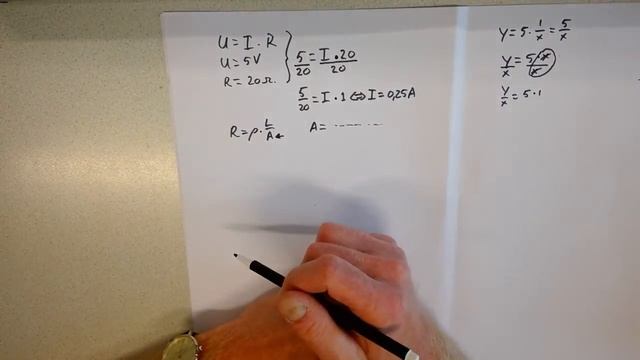 U = I · R
U = 5V
R = 20Ω.
5/20 = I · 20/20
5/20 = I · 1 ⇔ I = 0,25A
R = ρ · L/A ←
A = ---- -- --
Y = 5 · 1/x = 5/x
Y/x = 5 · x/x
Y/x = 5 · 1